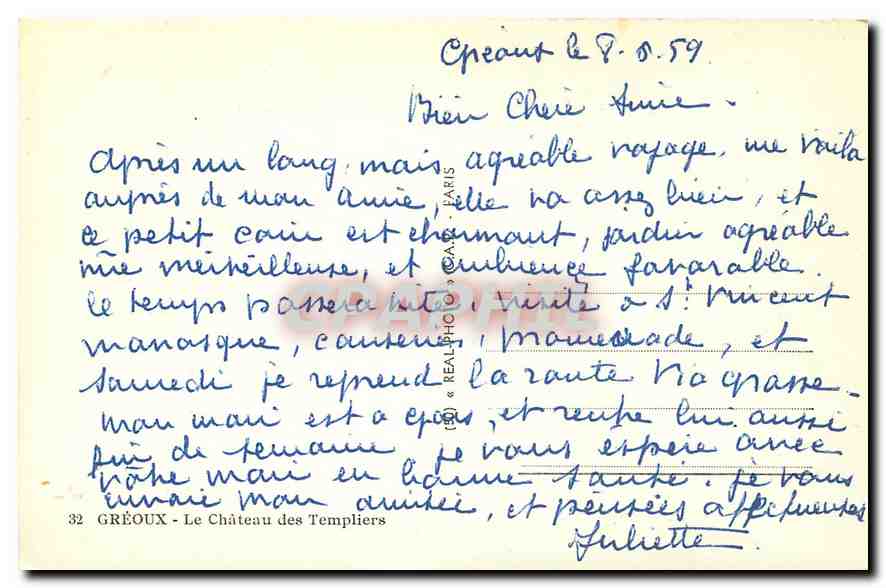 Gréoux le 8.5.59
Bien Chère Amie.
après un long, mais agréable voyage, me voila
auprès de mon amie, elle va assez bien, et
ce petit coin est charmant, jardin agréable
vue merveilleuse, et ambience favorable.
le temps passera vite, visite à St Vincent
manosque, causeries, promenade, et
samedi je reprend la route via grasse.
mon mari est a, et rentre lui aussi
fin de semaine, je vous espère avec
vôtre mari en bonne santé. je vous
envoie mon amitié, et pensées affectueuses
Juliette.
32 GRÉOUX - Le Château des Templiers
« REAL-PHOTO » C.A.P. - PARIS
CPAPHIL